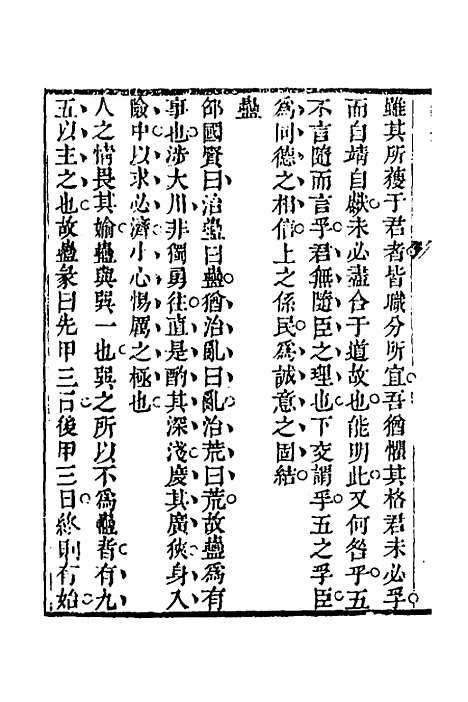 雖其所獲于君者皆職分所宜吾猶懼其格君未必孚
而自靖自獻未必盡合于道故也能明此又何咎乎五
不言隨而言孚君無隨臣之理也下交謂孚五之孚臣
為同德之相信上之係民為誠意之固結
蠱
邰國賢曰治蠱曰蠱猶治亂曰亂治荒曰荒故蠱為有
事也涉大川非獨勇往直是酌其深淺度其廣狹身入
險中以求必濟小心惕厲之極也
人之情畏其媮蠱與巽一也巽之所以不為蠱者有九
五以主之也故蠱彖曰先甲三日後甲三日終則有始